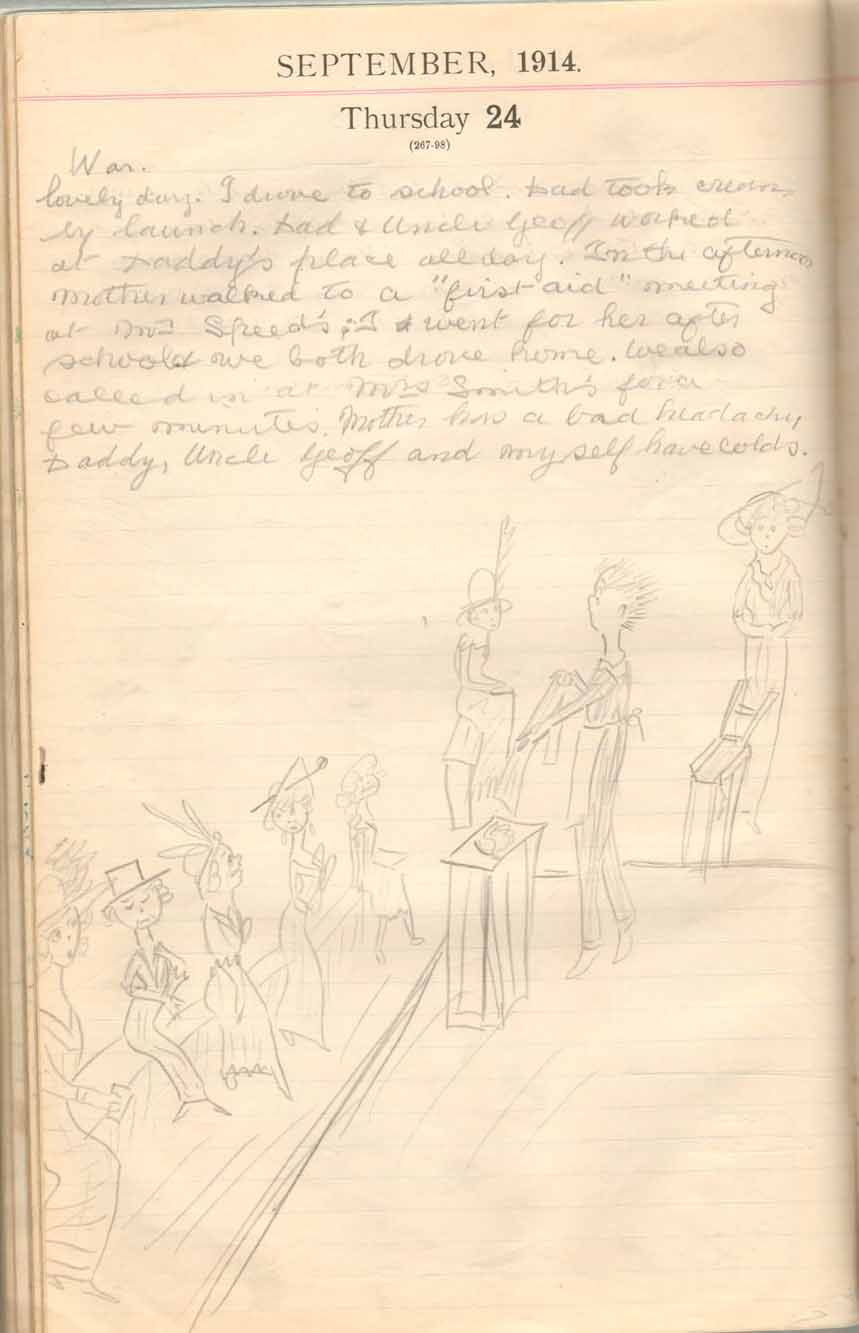 SEPTEMBER, 1914.
Thursday 24
(267-98)
War.
lovely day. I drove to school. Dad took cream
by launch. Dad & Uncle Geoff worked
at Daddy's place all day. In the afternoon
Mother walked to a "first aid" meeting
at Mrs Speed's; I went for her after
school & we both drove home. We also
called in at Mrs Smith's for a
few minutes. Mother has a bad headache,
Daddy, Uncle Geoff and myself have colds.